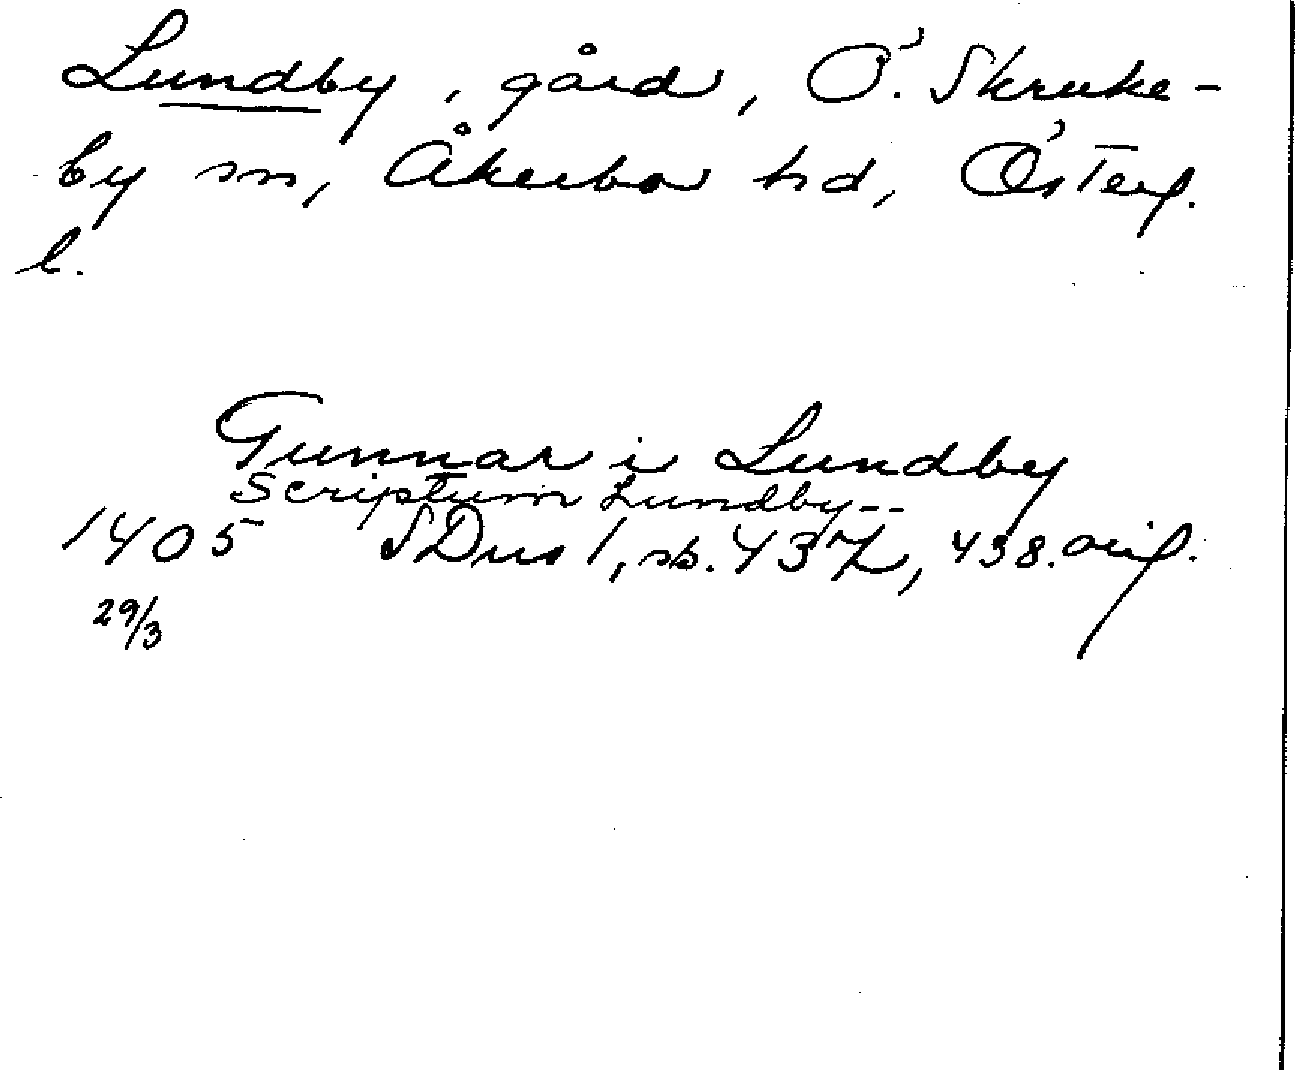 Lundby, gård, Ö. Skruke-
by sn, Åkerbo hd, Österg.
l.
Gunnar i Lundby
Scriptum Lundby--
1405 SDns 1, sb. 437, 438. orig.
29/3